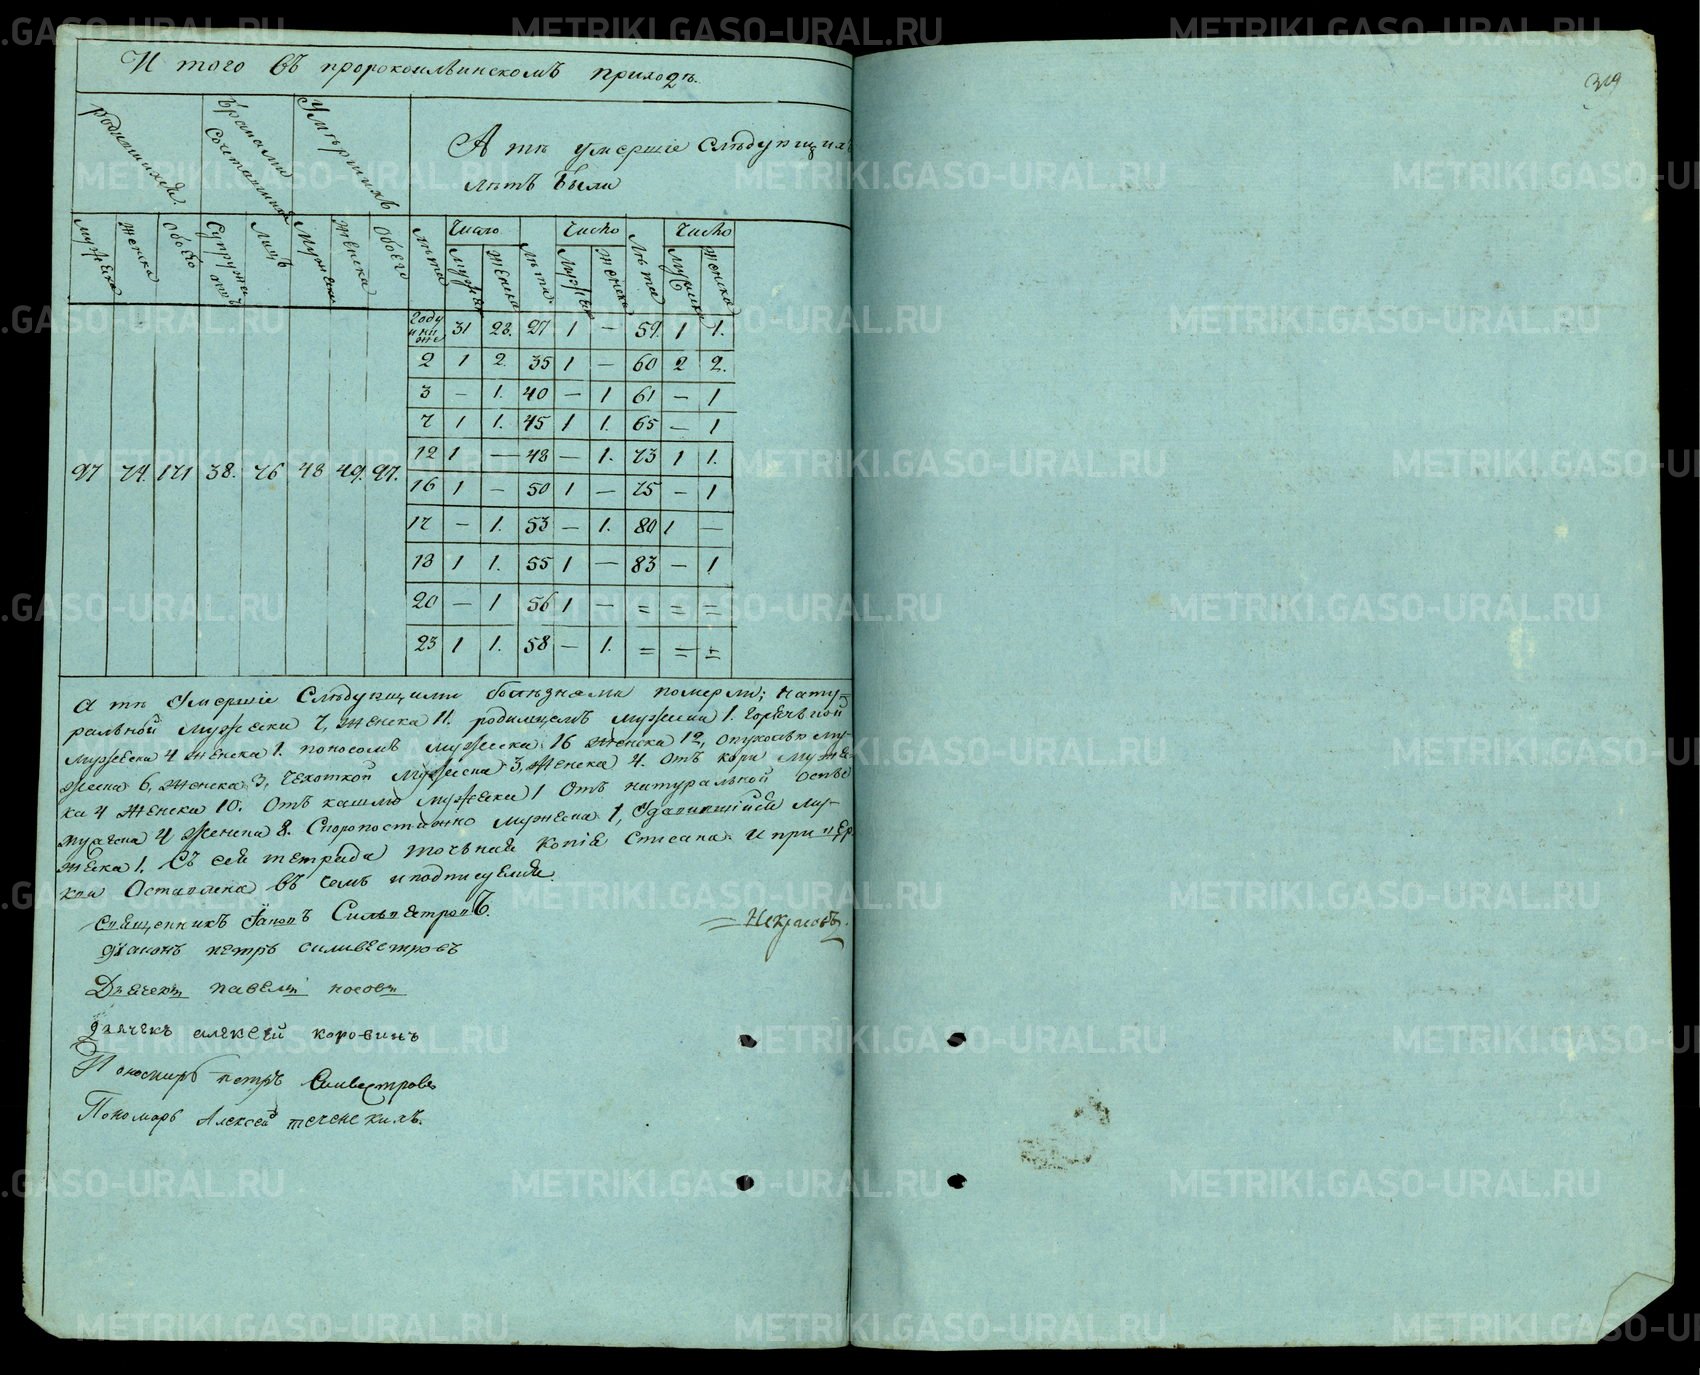 И того въ пророкоильинскомъ приходѣ.
319
родившихся. Браками Сочетавшихся Умершихъ
А тѣ умершіе Слѣдующихъ
лѣтъ были
мужеска женска обоего Супружествъ Лицъ Мужеска Женска обоего Лѣта Число Лѣта Число Лѣта Число
мужеска женска мужеска женска мужеска женска
году и ниже 31 28. 27 1 — 59. 1 1.
2 1 2. 35 1 — 60 2 2.
3 — 1. 40 — 1 61 — 1
7 1 1. 45 1 1. 65 — 1
97 74. 171 38. 76 48 49. 97. 12 1 — 48 — 1. 73 1 1.
16 1 — 50 1 — 75 — 1
17 — 1. 53 — 1. 80 1 —
18 1 1. 55 1 — 83 — 1
20 — 1 56 1 — = = =
23 1 1. 58 — 1. = = =
а тѣ Умершіе Слѣдующими болѣзнями померли; нату-
ральной мужеска 7, женска 11. родимцемъ мужеска 1. горячкой
мужеска 4 женска 1. поносомъ мужеска 16 женска 12, опухолью му-
жеска 6, женска 3, чехоткой мужеска 3, женска 4. отъ кори муже-
ка 4 женска 10. отъ кашлю мужеска 1 отъ натуральной оспы
мужеска 4 женска 8. Скоропостижно мужеска 1, Удавившійся му-
жеска 1. Съ сей тетради точная копія Списана и при цер
кви Оставлена въ чемъ и подписуемся.
Священникъ Іаковъ Сильвестровъ.
— Некрасовъ.
діаконъ петръ силивестровъ
Дьячекъ павелъ носовъ
дьячекъ алексей коровинъ
Пономарь петръ Силвестровъ
Пономарь Алексей теченскихъ.
METRIKI.GASO-URAL.RU